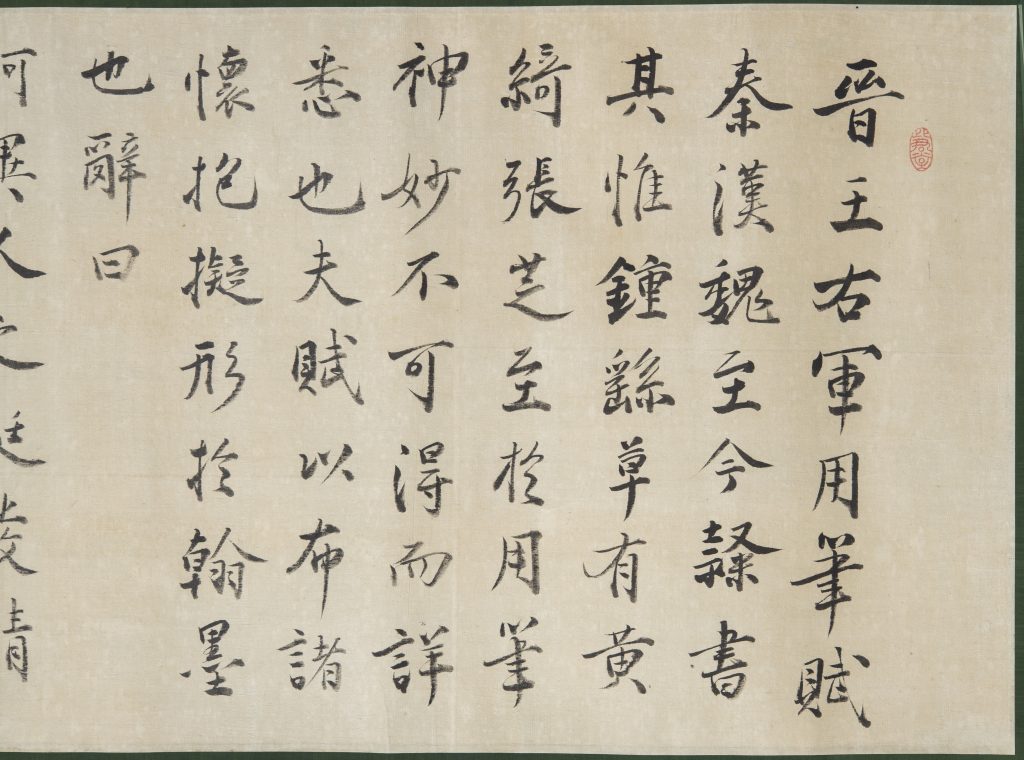 晉王右軍用筆賦
秦漢魏至今隸書
其惟鍾繇草有黃
綺張芝至於用筆
神妙不可得而詳
悉也夫賦以布諸
懷抱擬形於翰墨
也辭曰
異人之